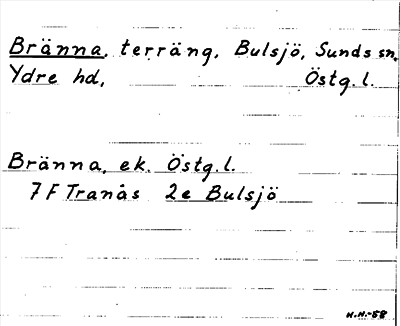 Bränna, terräng, Bulsjö, Sunds sn.
Ydre hd, Östg. l.
Bränna, ek. Östg. l.
7 F Tranås 2e Bulsjö
H.H.-58